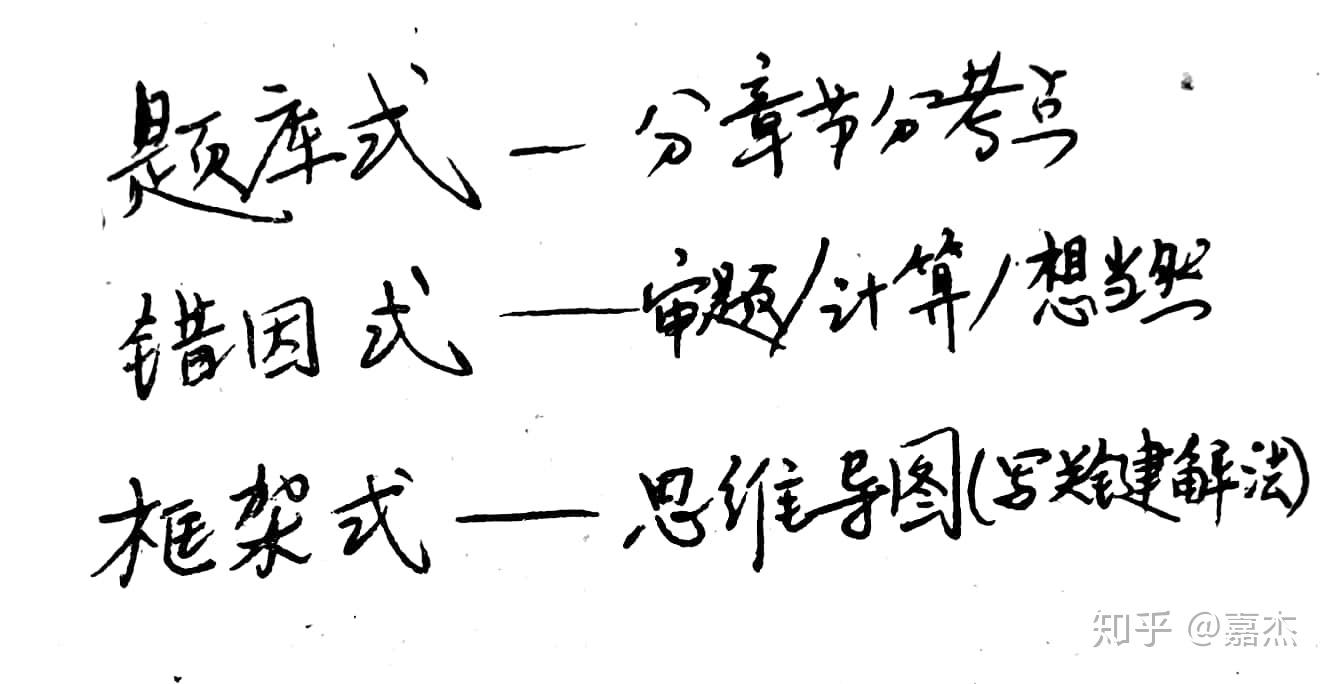 题库式 — 分章节分考点
错因式 —— 审题/计算/想当然
框架式 —— 思维导图(写关键解法)
知乎 @嘉杰